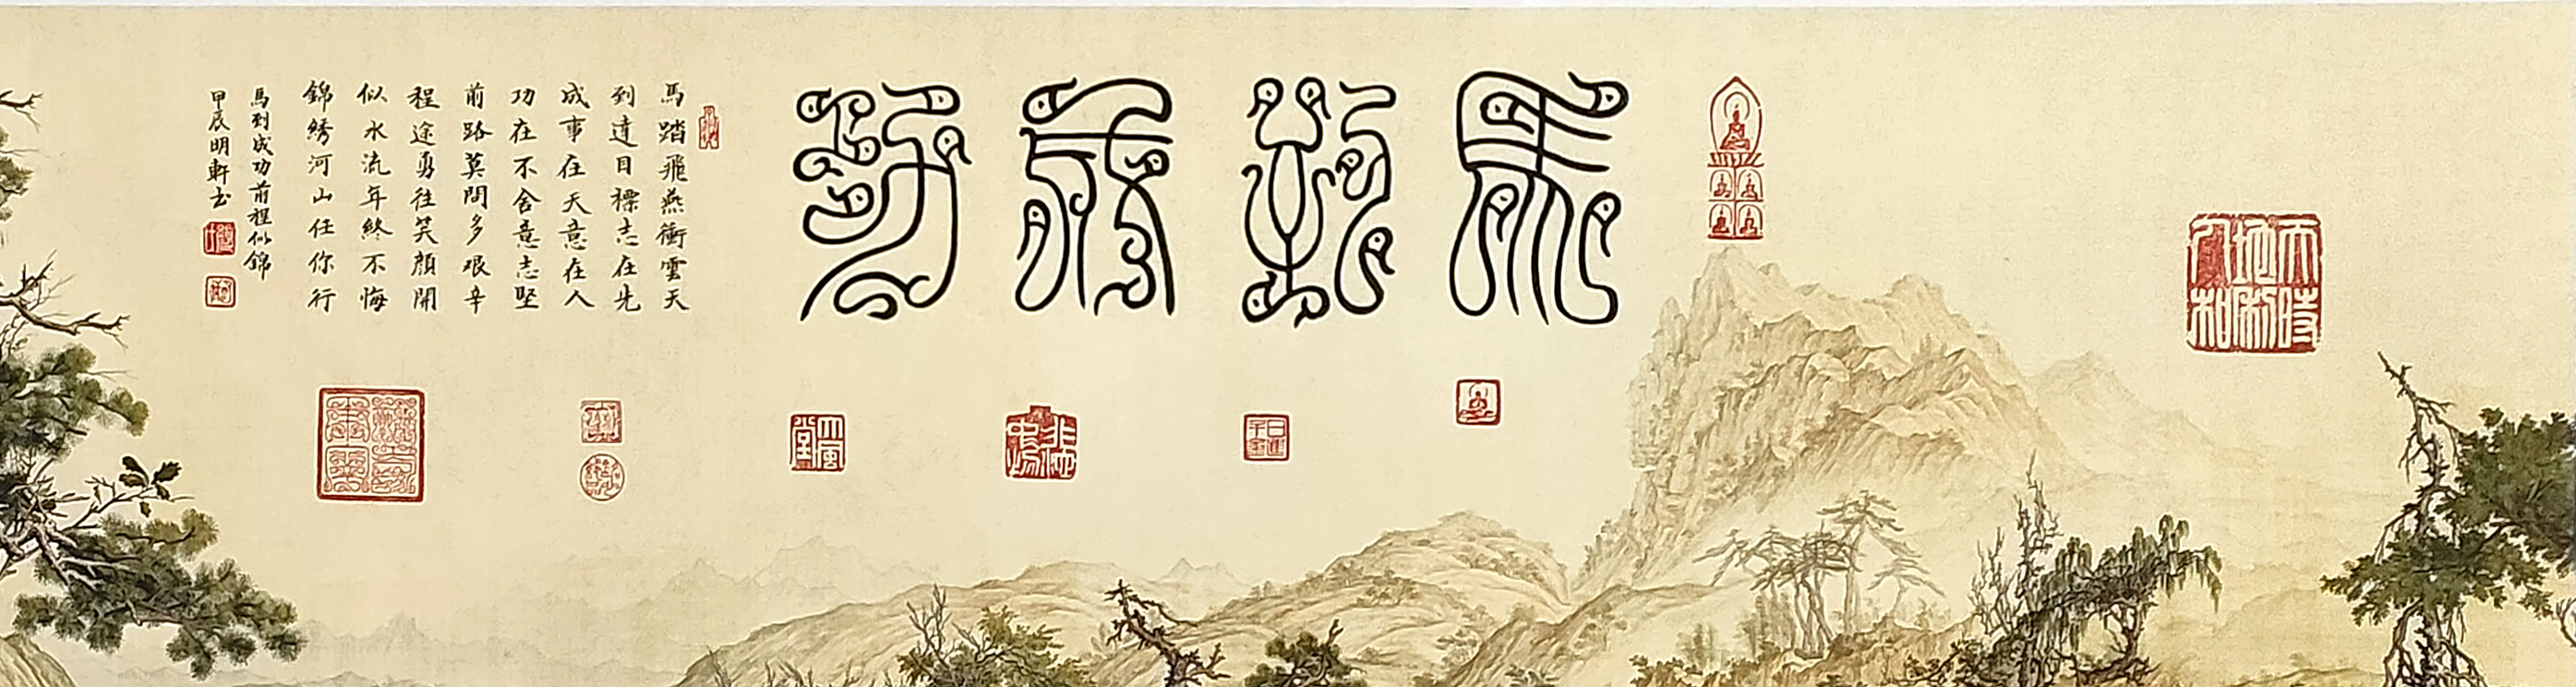 天時地利人和
馬到成功
馬踏飛燕衝雲天
到達目標志在先
成事在天意在人
功在不舍意志堅
前路莫問多艰辛
程途勇往笑顔開
似水流年終不悔
錦綉河山任你行
馬到成功前程似錦
甲辰明軒书
大風堂